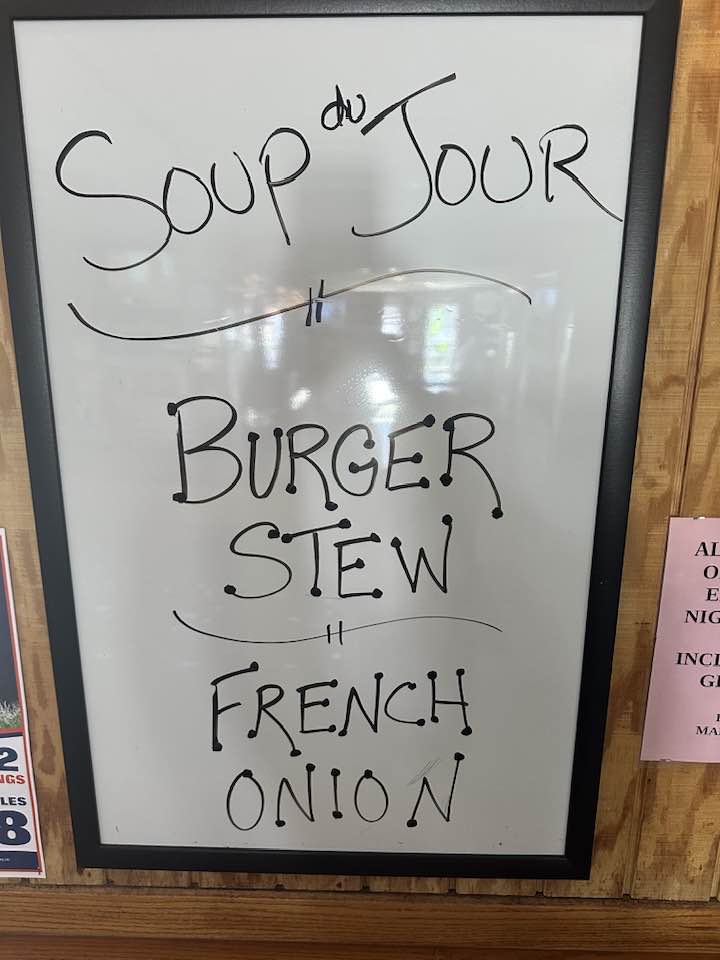 SOUP du JOUR
BURGER
STEW
FRENCH
ONION
2
NGS
LES
8
AL
O
E
NIG
INCL
GI
MA